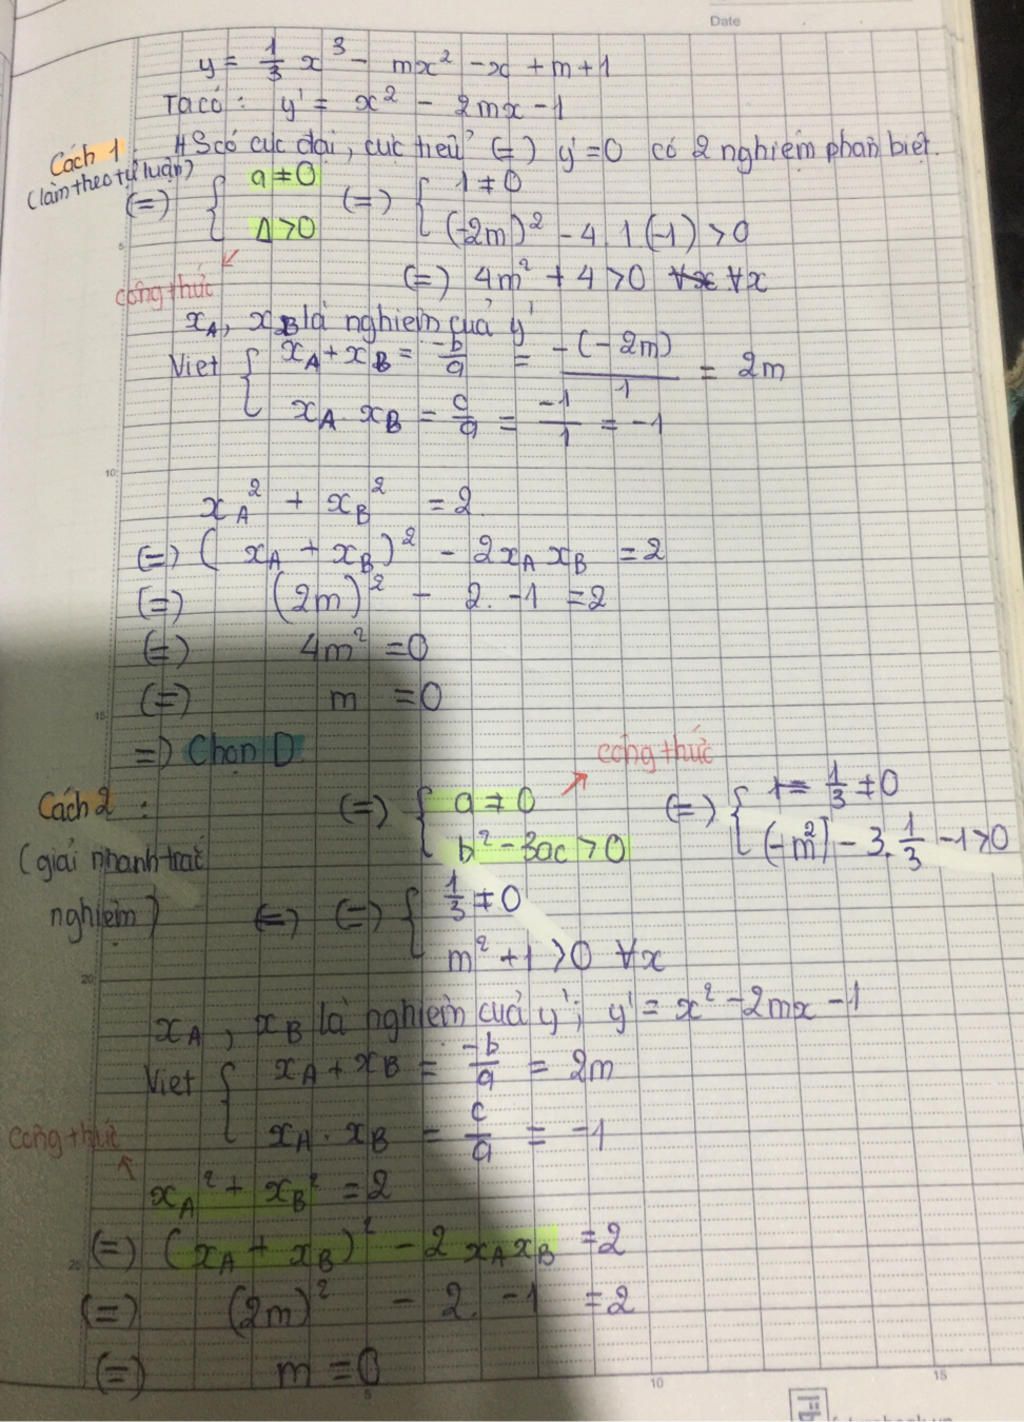 Date
y = 1/3 x³ - mx² - x + m + 1
Ta có: y' = x² - 2mx - 1
Cách 1
(làm theo tự luận)
HS có cực đại, cực tiểu (=) y' = 0 có 2 nghiệm phân biệt.
(=) { a ≠ 0 (=) { 1 ≠ 0
Δ > 0 (-2m)² - 4.1(-1) > 0
công thức
(=) 4m² + 4 > 0 ∀x ∀x
x_A, x_B là nghiệm của y'
Viet { x_A + x_B = -b/a = -(-2m)/1 = 2m
x_A . x_B = c/a = -1/1 = -1
x_A² + x_B² = 2
(=) (x_A + x_B)² - 2x_A x_B = 2
(=) (2m)² - 2. -1 = 2
(=) 4m² = 0
(=) m = 0
=) Chọn D
công thức
Cách 2 : (=) { a ≠ 0 (=) { 1 = 1/3 ≠ 0
b² - 3ac > 0 (-m²) - 3. 1/3 . -1 > 0
(giải nhanh trắc
nghiệm)
(=) (=) { 1/3 ≠ 0
m² + 1 > 0 ∀x
x_A, x_B là nghiệm của y'; y' = x² - 2mx - 1
Viet { x_A + x_B = -b/a = 2m
x_A . x_B = c/a = -1
công thức
x_A² + x_B² = 2
(=) (x_A + x_B)² - 2 x_A x_B = 2
(=) (2m)² - 2. -1 = 2
(=) m = 0
5
10
15
20
25
5
10
15